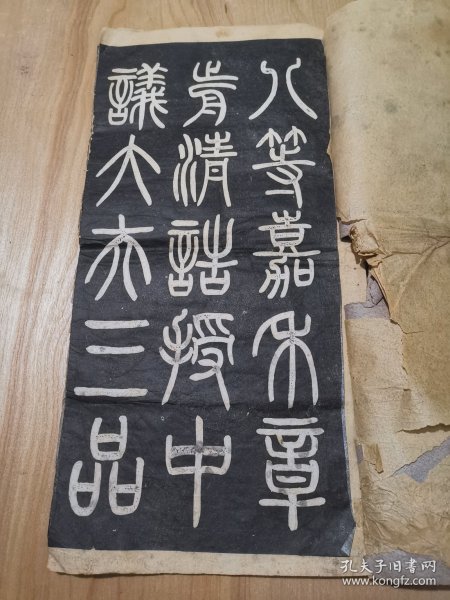 八等嘉禾章
前清誥授中
議大夫三品
孔夫子旧书网
www.kongfz.com